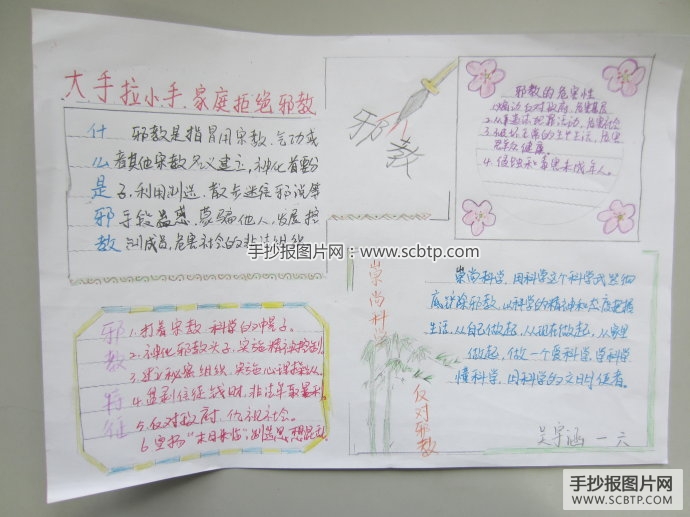 大手拉小手 家庭拒绝邪教
什么是邪教
邪教是指冒用宗教、气功或
者其他宗教名义建立,神化首要份
子,利用制造、散步迷信邪说等
手段蛊惑、蒙骗他人,发展控
制成员,危害社会的非法组织
邪教
邪教的危害性
1.煽动反对政府,危害基层
2.从事违法犯罪活动,危害社会
3.破坏正常的生产生活,危害
群众健康。
4.侵蚀和毒害未成年人。
手抄报图片网:www.scbtp.com
邪教特征
1.打着宗教、科学的中幌子。
2.神化邪教头子,实施精神控制。
3.建立秘密组织,实施心理
4.盘剥信徒钱财,非法牟取暴利。
5.反对政府,仇视社会。
6.宣扬“末日来临”,制造思想混乱
崇尚科学
反对邪教
崇尚科学,用科学这个科学武器彻
底破除邪教,以科学的精神和态度把握
生活,从自己做起,从现在做起,从家里
做起,做一个爱科学,学科学
懂科学,用科学的文明使者。
涵 一六
手抄报图片网
WWW.SCBTP.COM